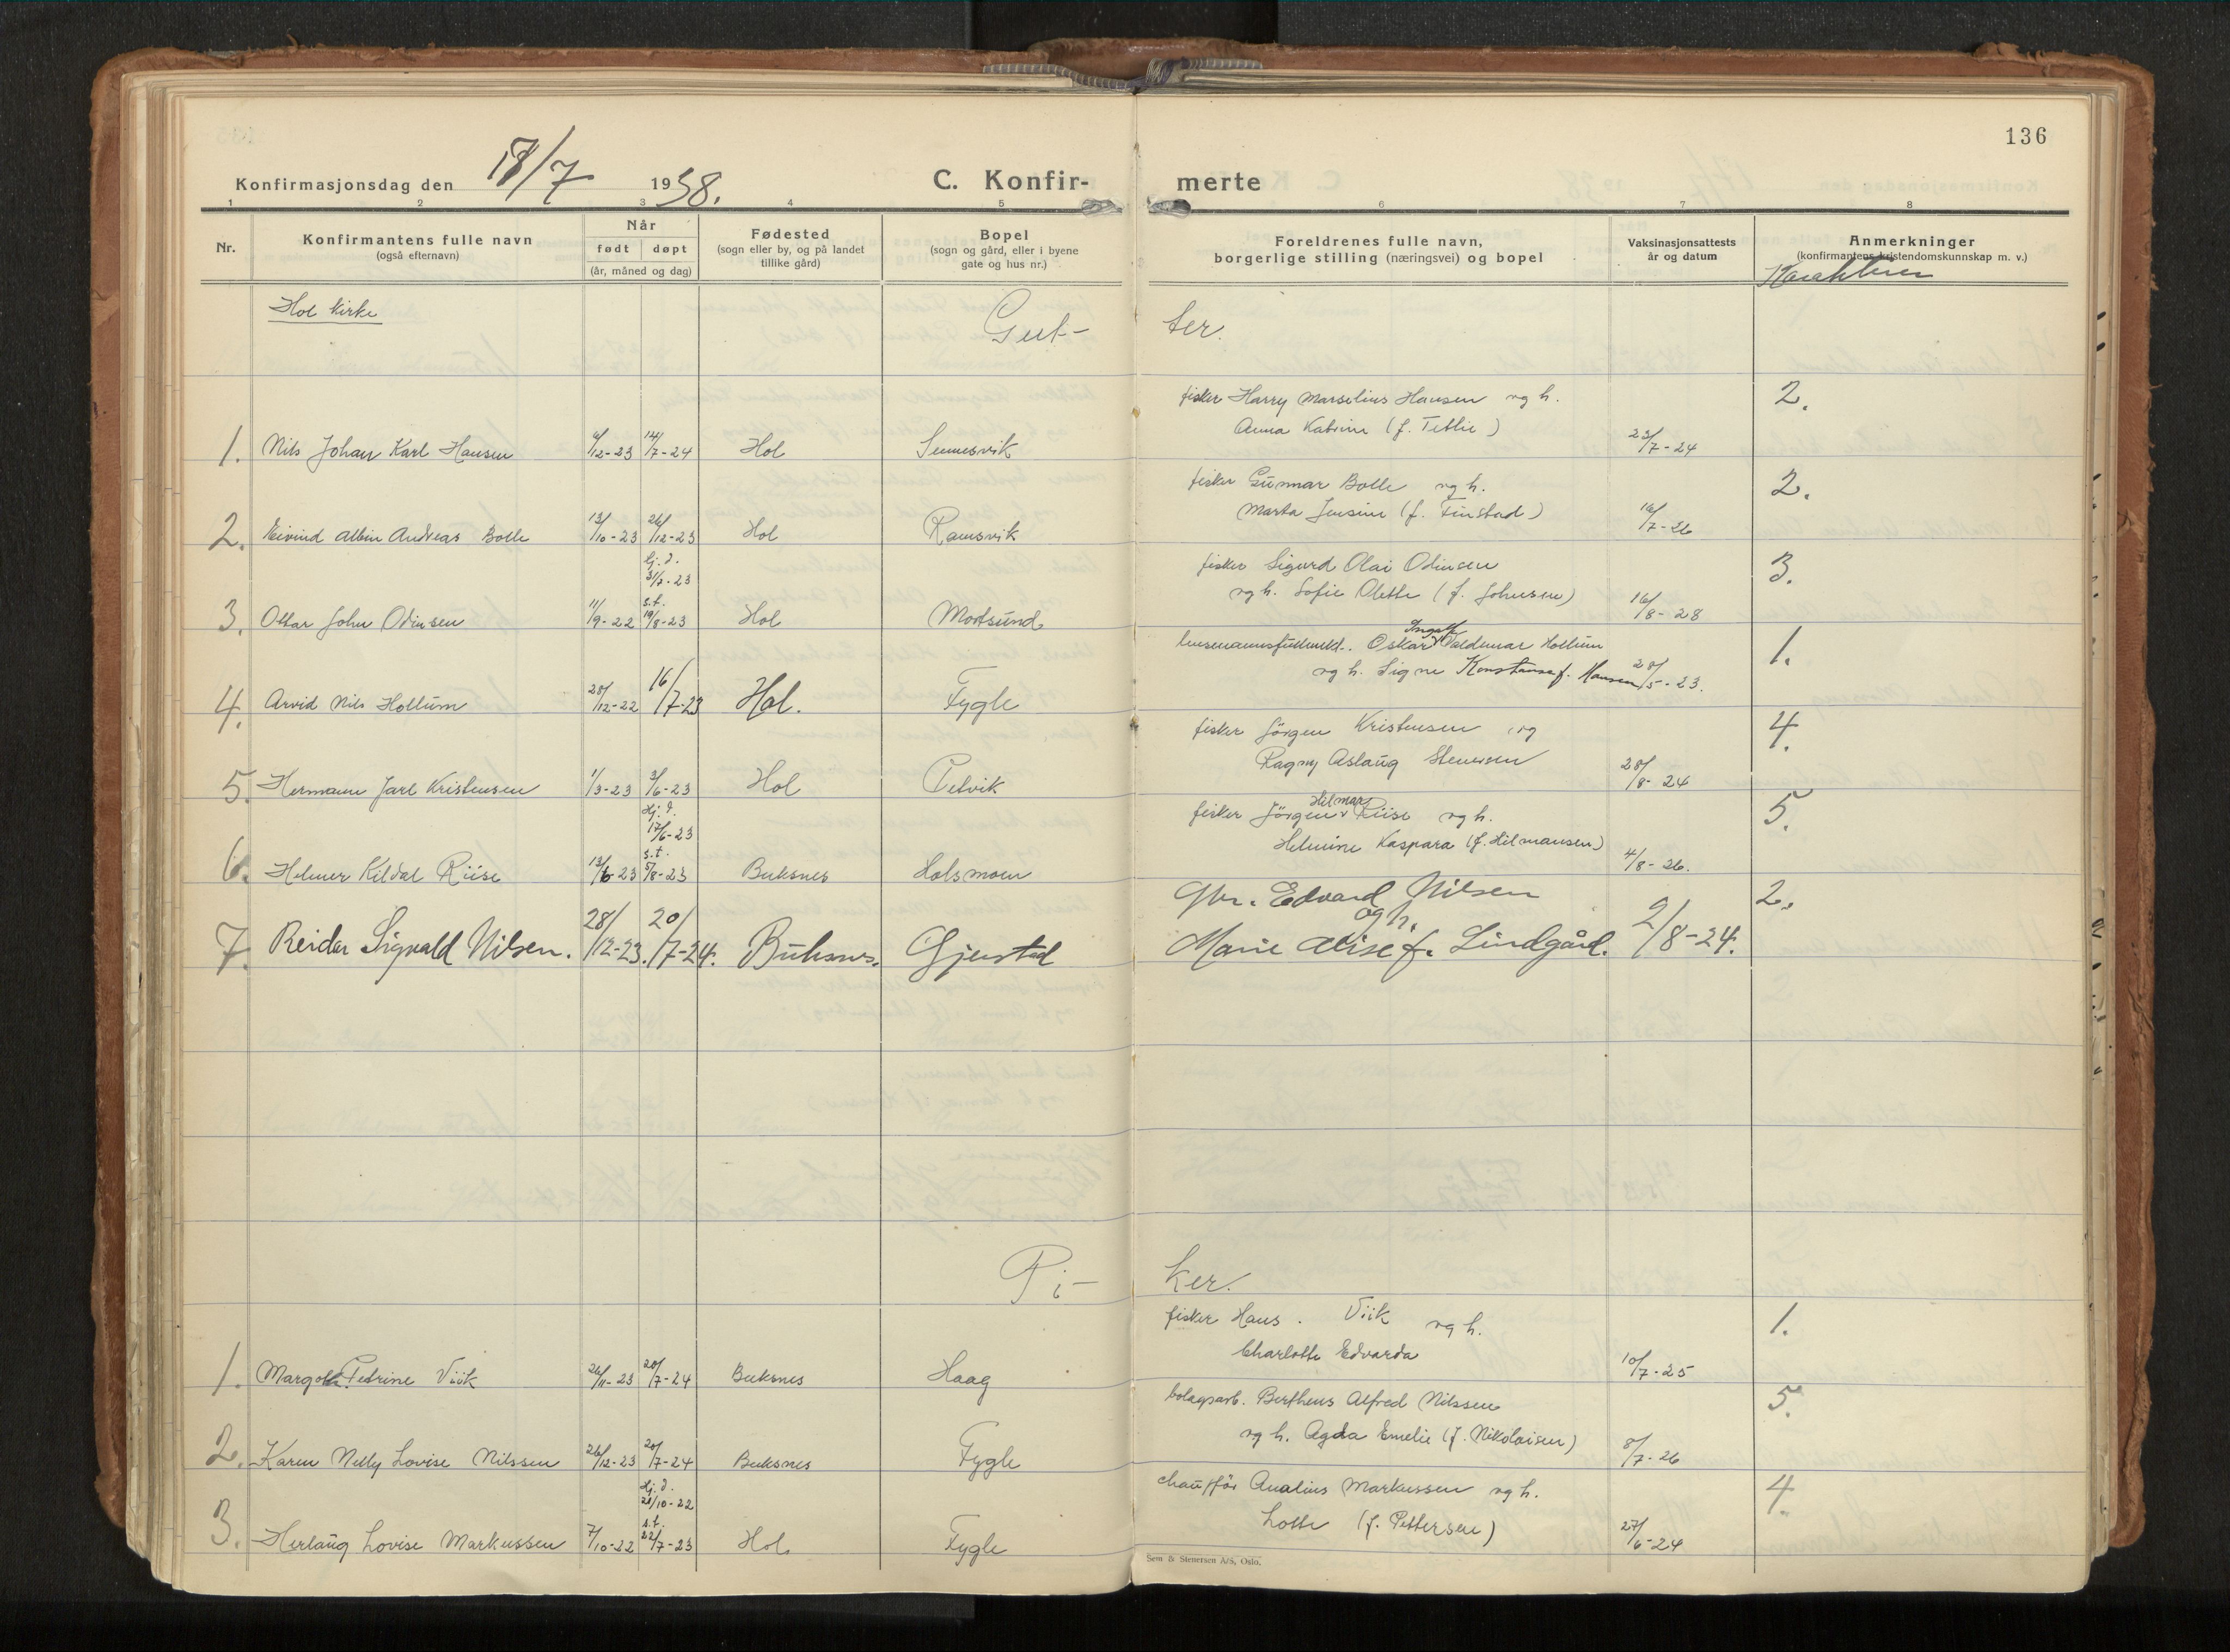 136
Konfirmasjonsdag den 17/7 1938. C. Konfir- merte
1 2 3 4 5 6 7 8
Nr.
Konfirmantens fulle navn
(også efternavn)
Når
født døpt
(år, måned og dag)
Fødested
(sogn eller by, og på landet
tillike gård)
Bopel
(sogn og gård, eller i byene
gate og hus nr.)
Foreldrenes fulle navn,
borgerlige stilling (næringsvei) og bopel
Vaksinasjonsattests
år og datum
Anmerkninger
(konfirmantens kristendomskunnskap m. v.)
Hol kirke Gut- ter.
fisker Harry Marselius Hansen og h. 2.
Anna Katrine (f. Teblie)
1. Nils Johan Karl Hansen 6/12-23 14/7-24 Hol Sennesvik 23/7-24
fisker Gunnar Bolle og h. 2.
Marta Jensine (f. Finstad)
2. Eivind Albin Andreas Bolle 13/10-23 26/12-23 Hol Ramsvik 16/7-26
hj. d.
31/7-23
fisker Sigurd Olai Odinsen 3.
og h. Sofie Olette (f. Johnsen)
s.t.
3. Ottar John Odinsen 11/9-22 19/8-23 Hol Mortsund 16/8-28
Ingolf
lensmannsfullmekt. Oskar Valdemar Hollum 1.
og h. Signe Konstanse f. Hansen 28/5-23.
4. Arvid Nils Hollum 28/12-22 16/7-23 Hol. Fygle
fisker Jørgen Kristensen og 4.
Ragny Aslaug Stenersen
5. Hermann Jarl Kristensen 1/3-23 3/6-23 Hol Petvik 28/8-24
hj. d.
17/6-23
Hilmar
fisker Jørgen Riise og h. 5.
Helmine Kaspara (f. Hilmansen)
s.t.
6. Helmer Kildal Riise 13/6-23 5/8-23 Buksnes Holsmoen 4/8-26.
Gbr. Edvard Nilsen 2.
og h.
7. Reidar Sigvald Nilsen. 28/12-23. 20/7-24. Buksnes. Gjerstad Marie Alise f. Lindgård. 2/8-24.
Pi- ker.
fisker Hans. Viik og h. 1.
Charlotte Edvarda
1. Margoth Petrine Viik 26/11-23 20/7-24 Buksnes Haag 10/7-25
bolagsarb. Bertheus Alfred Nilssen 5.
og h. Agda Emelie (f. Nikolaisen)
2. Karen Nelly Lovise Nilssen 26/12-23 20/7-24 Buksnes Fygle 8/7-26
hj. d.
21/10-22
chauffør Analius Markussen og h. 4.
Lotte (f. Pettersen)
s.t.
3. Herlaug Lovise Markussen 7/10-22 22/7-23 Hol Fygle 27/6-24
Sem & Stenersen A/S, Oslo.